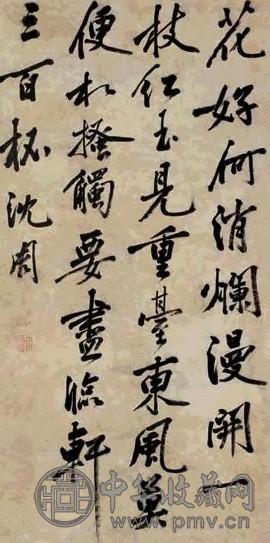 花好何消爛漫開一
枝紅玉見重臺東風莫
便相撥觸要盡臨軒
三百杯沈周
中华收藏网
www.pmv.cn